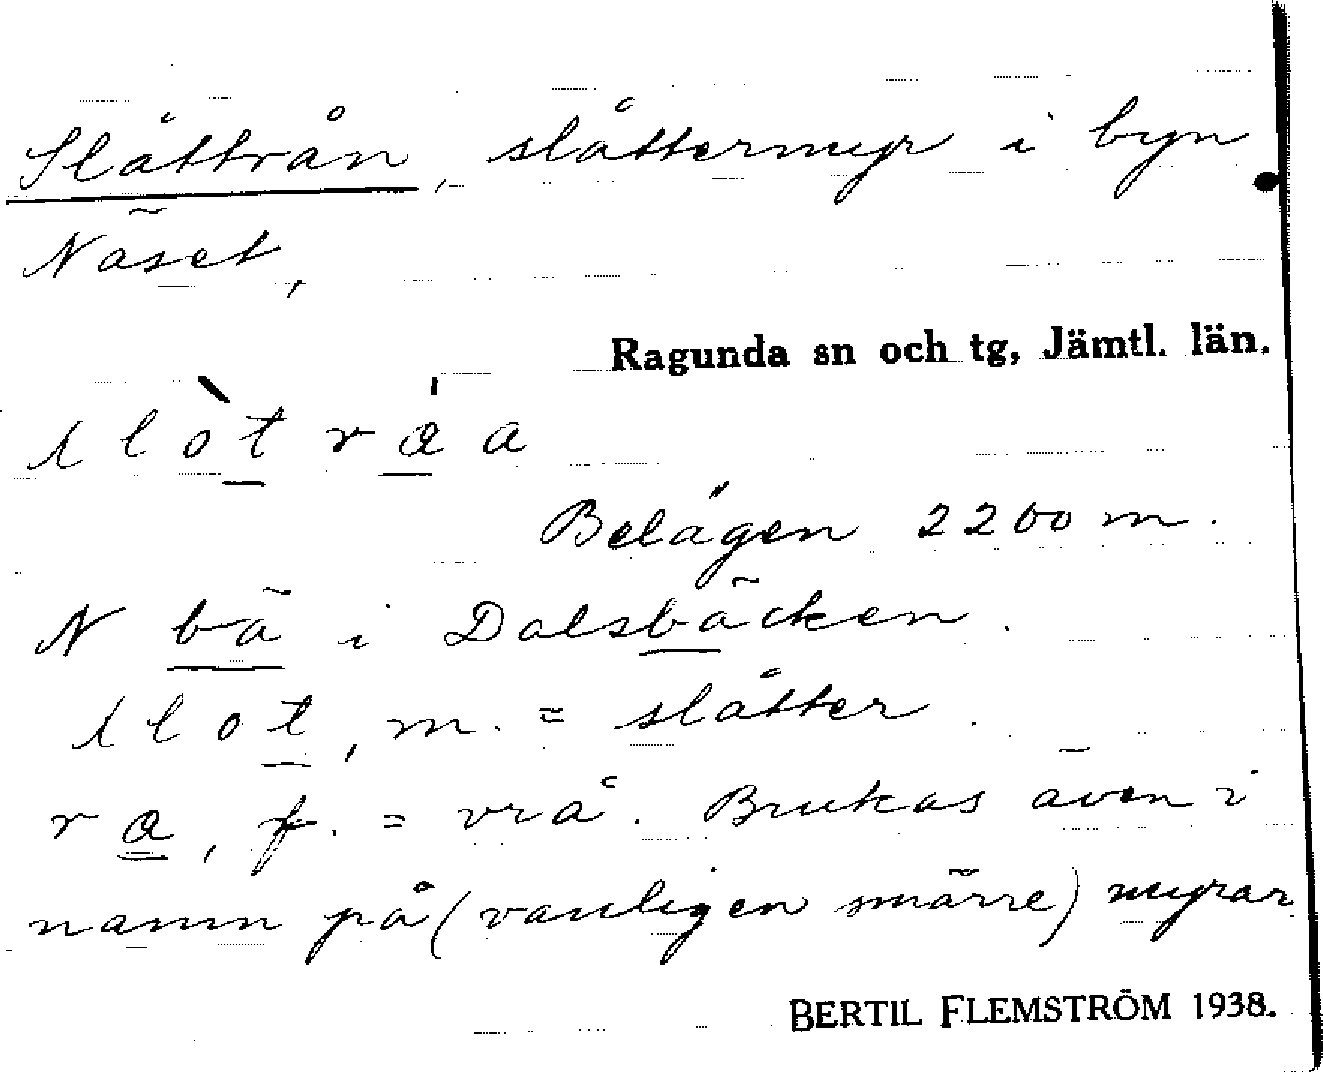 Slåttrån, slåttermyr i byn
Näset,
Ragunda sn och tg, Jämtl. län.
slòt ráa
Belägen 2200 m.
N bä i Dalsbäcken.
slot, m. = slåtter.
ra, f. = vrå. Brukas även i
namn på (vanligen smärre) myrar
BERTIL FLEMSTRÖM 1938.